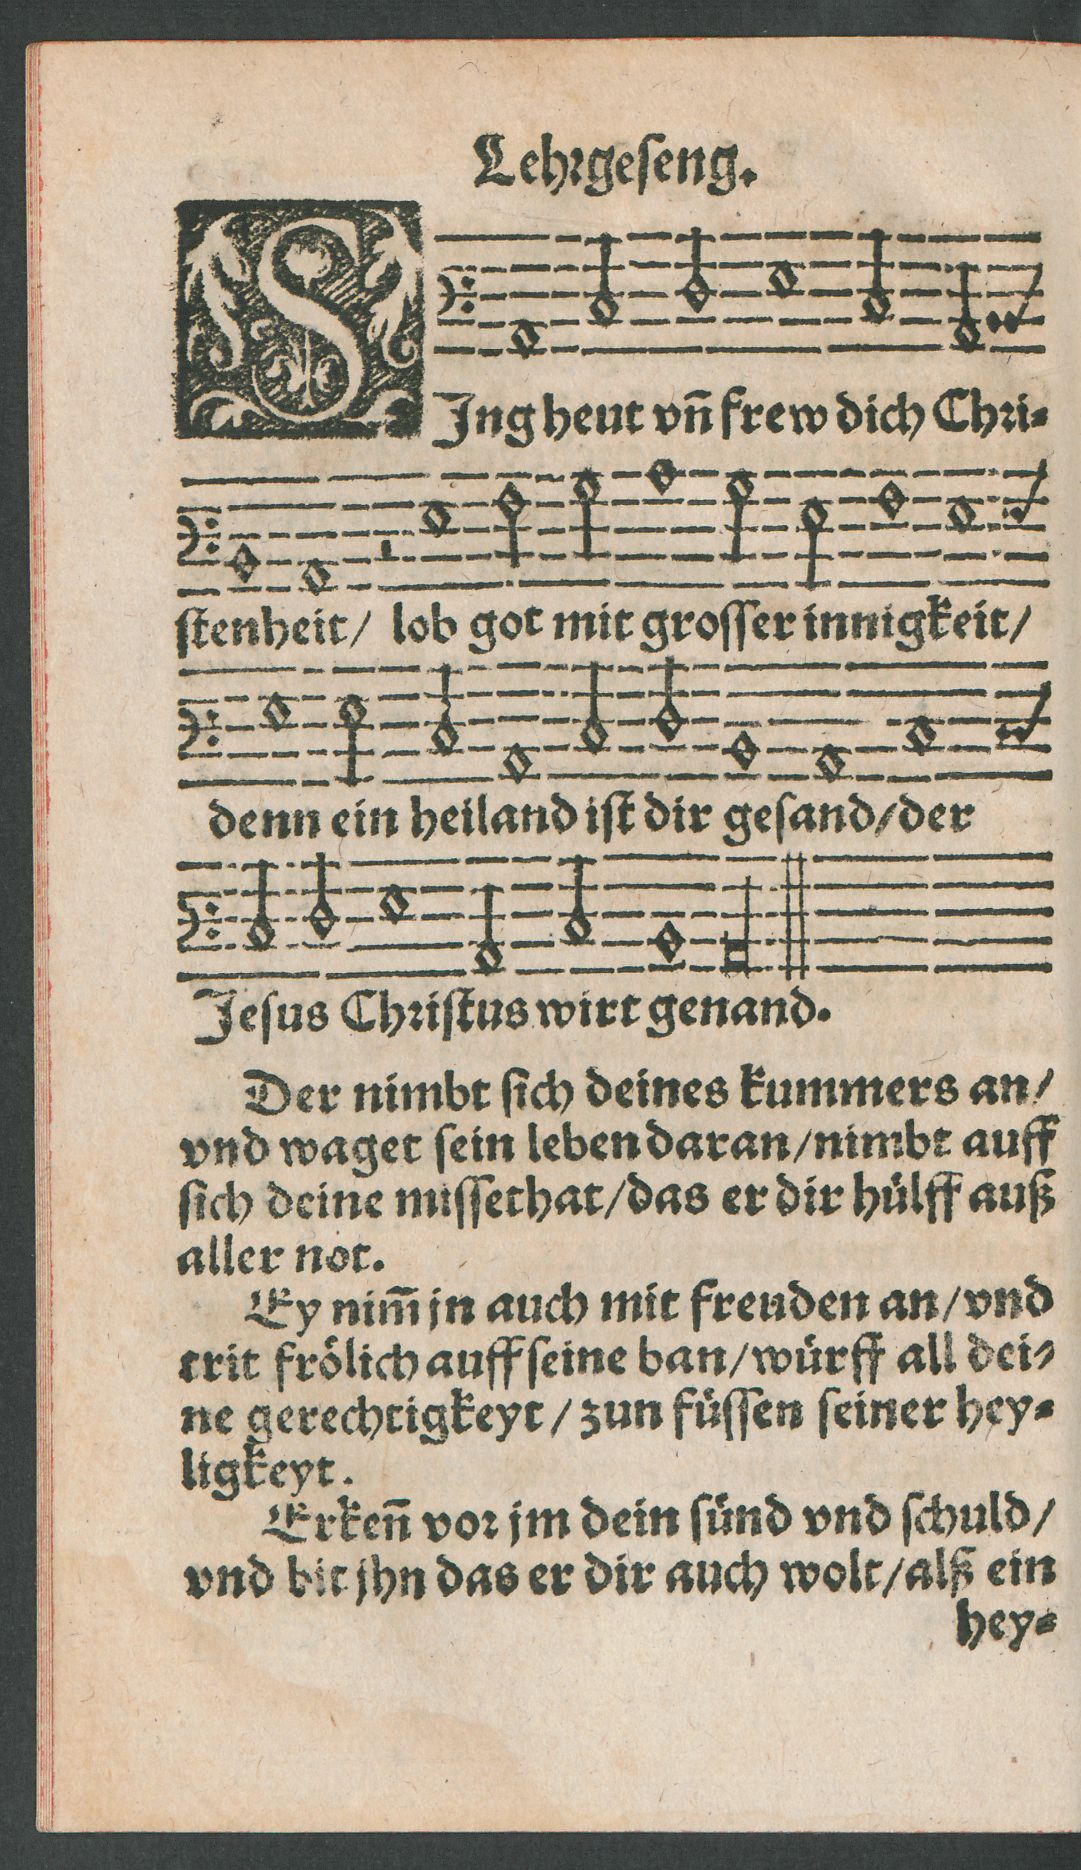 Lehrgeseng.
SJng heut vn̄ frew dich Chri-
stenheit/ lob got mit grosser innigkeit/
denn ein heiland ist dir gesand/der
Jesus Christus wirt genand.
Der nimbt sich deines kummers an/
vnd waget sein leben daran/nimbt auff
sich deine missethat/das er dir hülff auß
aller not.
Ey nim̄ jn auch mit freuden an/vnd
trit frölich auff seine ban/würff all dei-
ne gerechtigkeyt/zun füssen seiner hey-
ligkeyt.
Erken̄ vor jm dein sünd vnd schuld/
vnd bit jhn das er dir auch wolt/alß ein
hey-